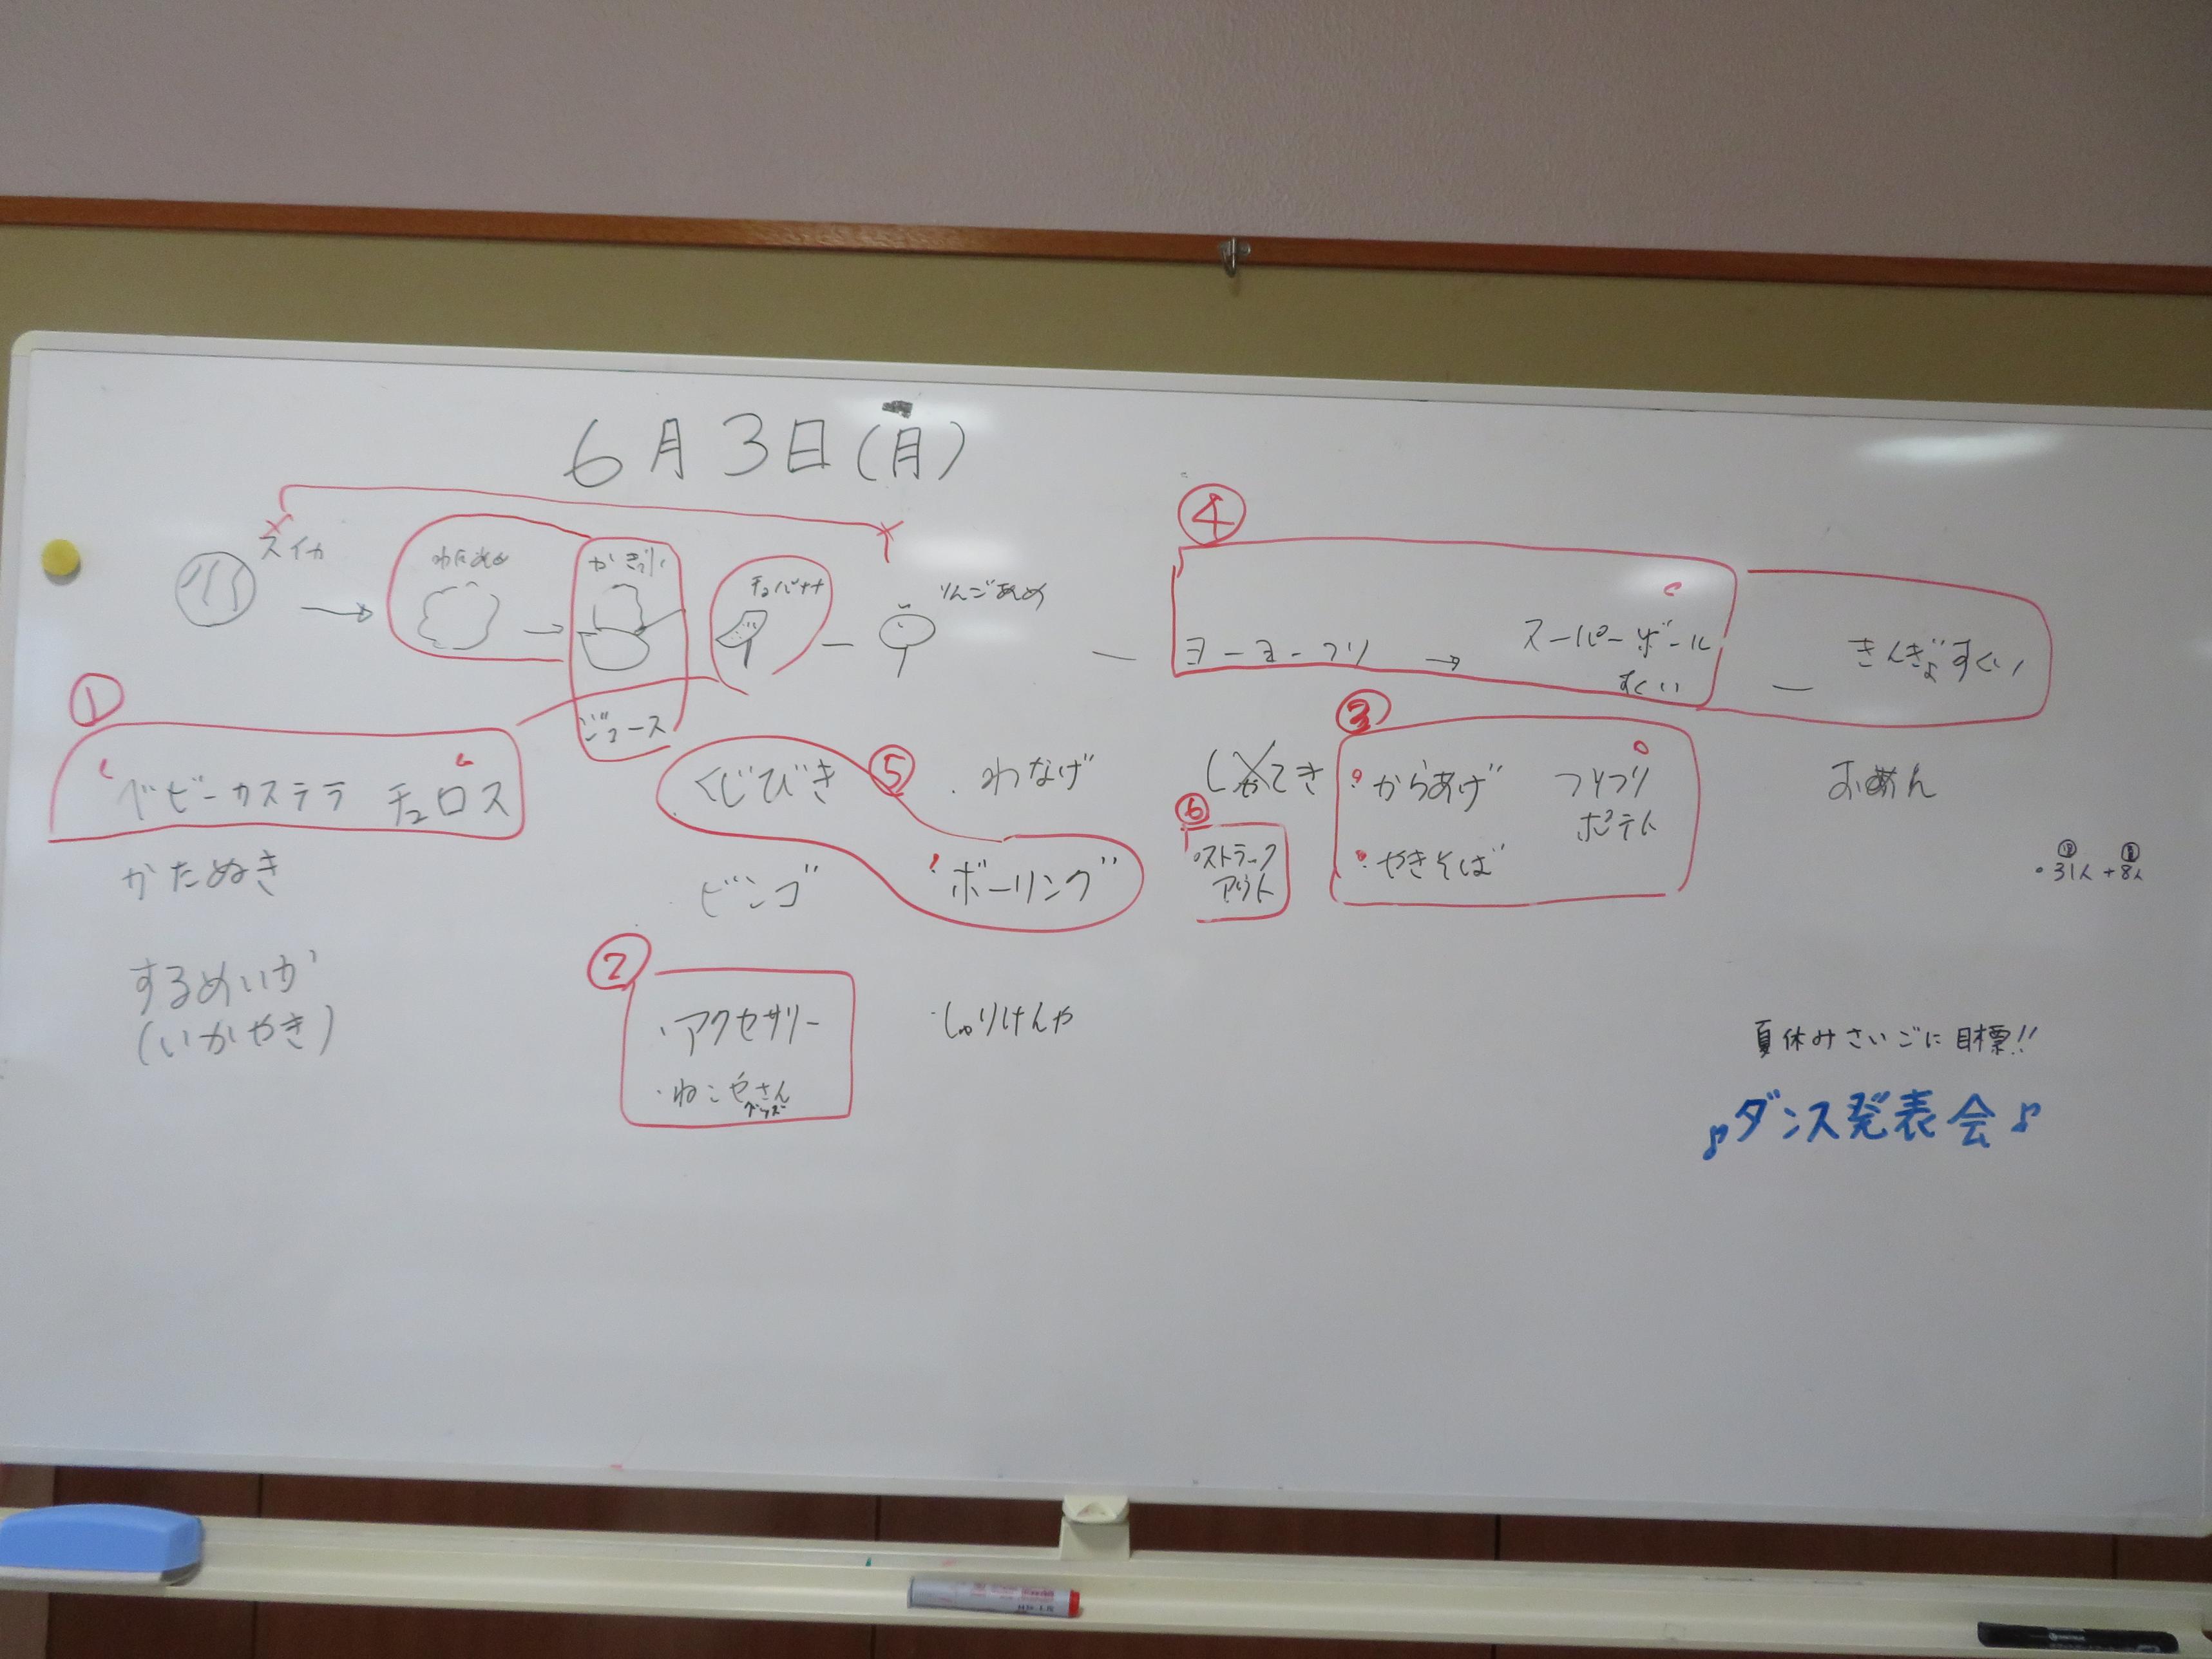 6月3日(月)
スイカ
わたあめ
かき氷
チョバナナ
りんごあめ
④
ヨーヨーつり
スーパーボール
すくい
きんぎょすくい
ジュース
①
ベビーカステラ チュロス
くじびき
⑤
わなげ
しゃてき
③
・からあげ
フリフリ
ポテト
・やきそば
おめん
⑥
・ストラック
アウト
かたぬき
ビンゴ
ボーリング
・31人+8人
するめいか
(いかやき)
②
・アクセサリー
・ねこやさん
グッズ
・しゅりけんや
夏休みさいごに目標!!
♪ダンス発表会♪